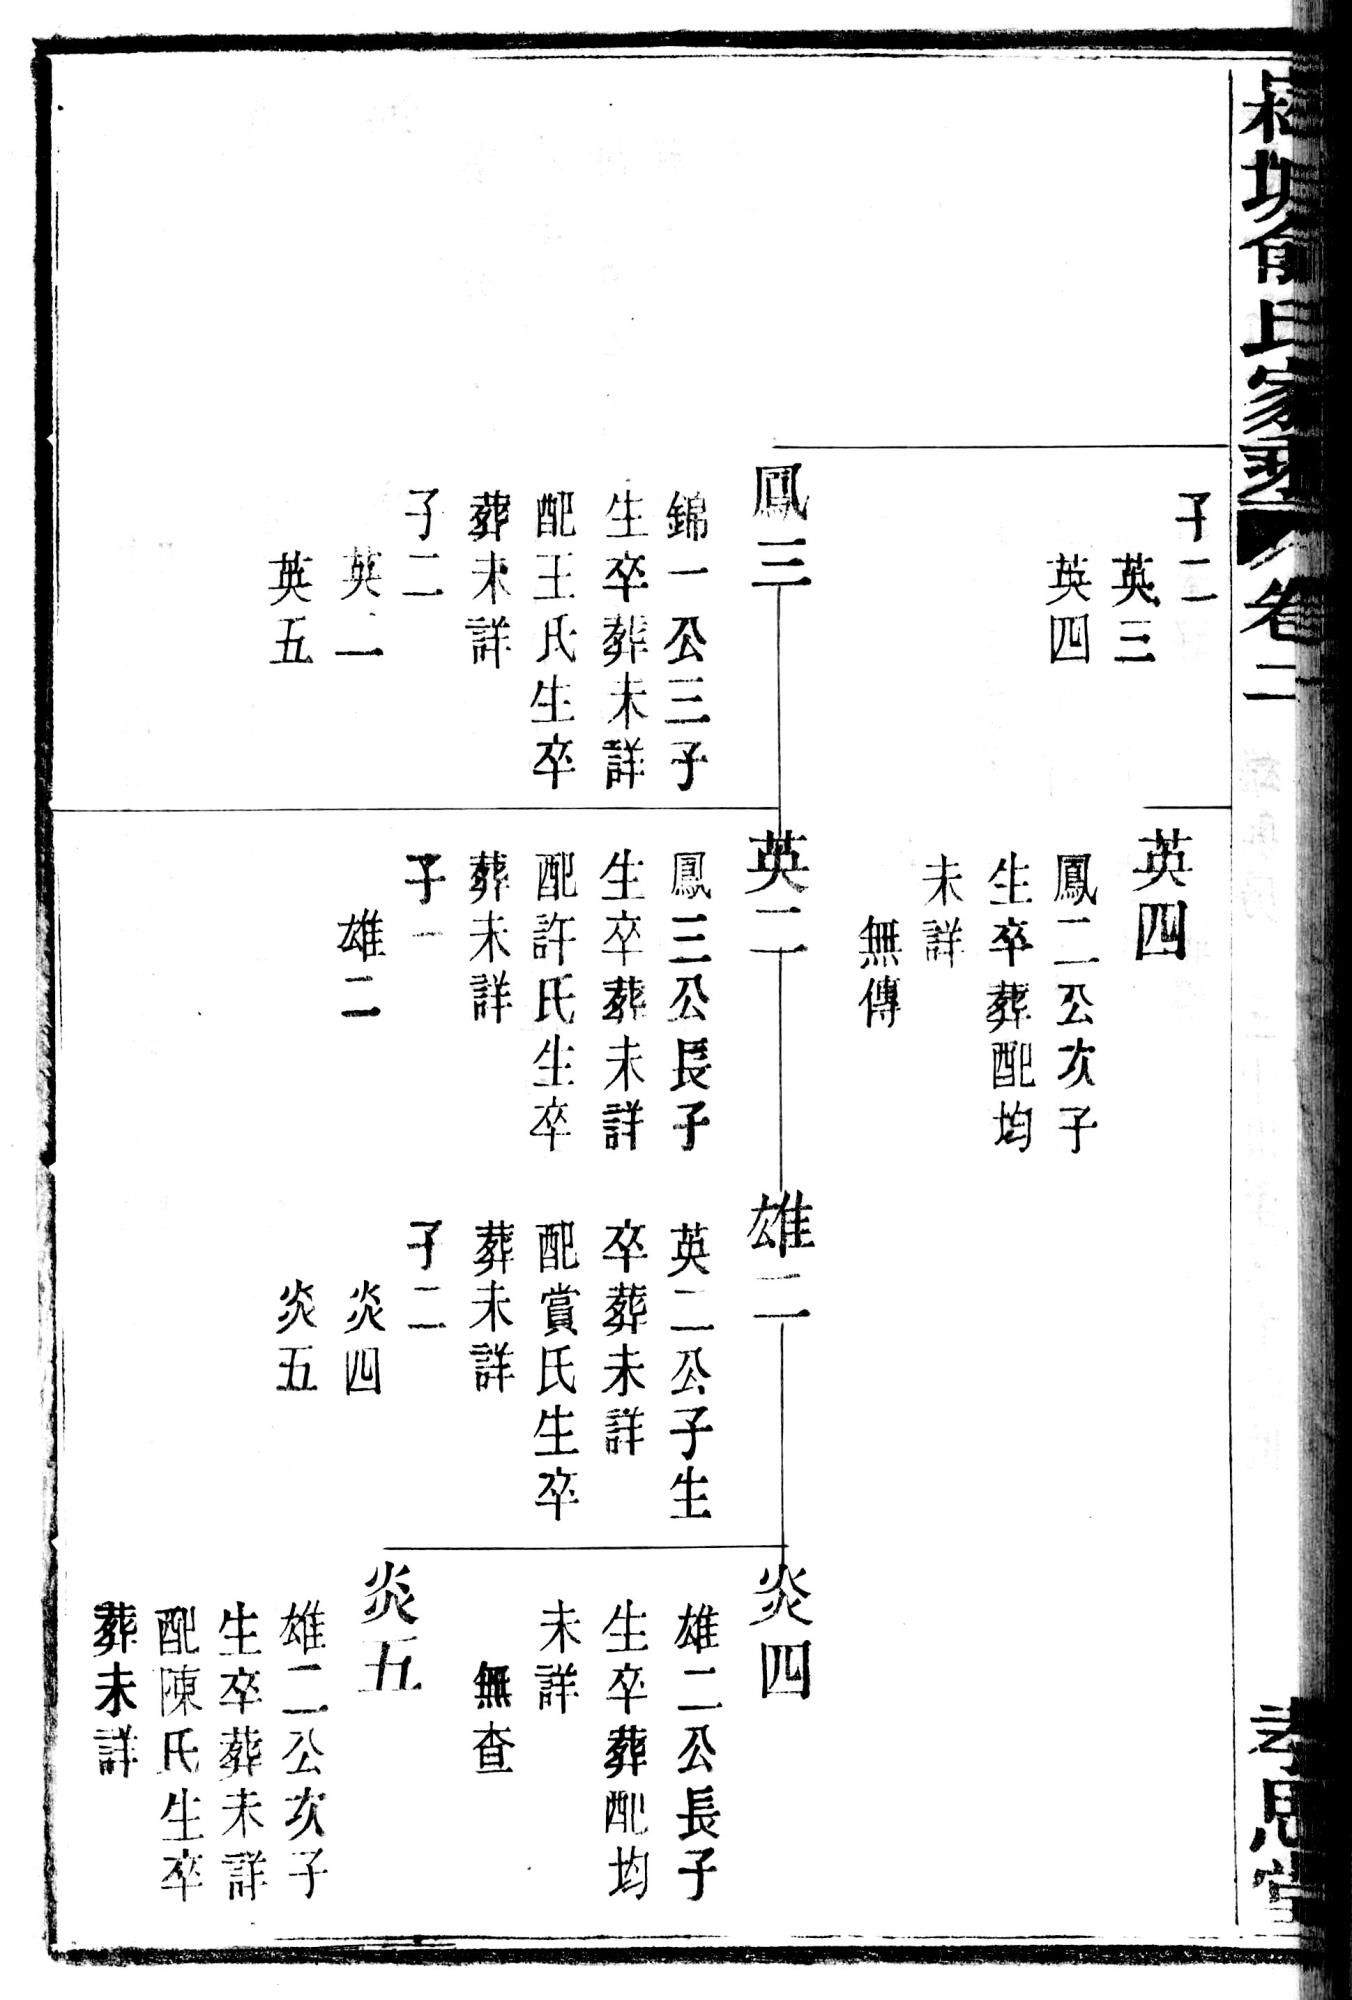 氏家乘
卷二
孝思堂
子二
英三
英四
鳳三
錦一公三子
生卒葬未詳
配王氏生卒
葬未詳
子二
英二
英五
英四
鳳二公次子
生卒葬配均
未詳
無傳
英二
鳳三公長子
生卒葬未詳
配許氏生卒
葬未詳
子一
雄二
雄二
英二公子生
卒葬未詳
配賞氏生卒
葬未詳
子二
炎四
炎五
炎四
雄二公長子
生卒葬配均
未詳
無查
炎五
雄二公次子
生卒葬未詳
配陳氏生卒
葬未詳